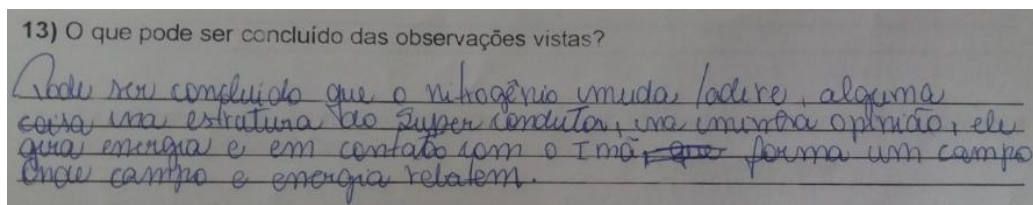 13) O que pode ser concluído das observações vistas?
Pode ser concluido que o nitrogênio muda /adere, alguma
coisa na estrutura do super condutor, na minha opinião, ele
gera energia e em contato com o Imã, forma um campo
onde campo e energia relatem.